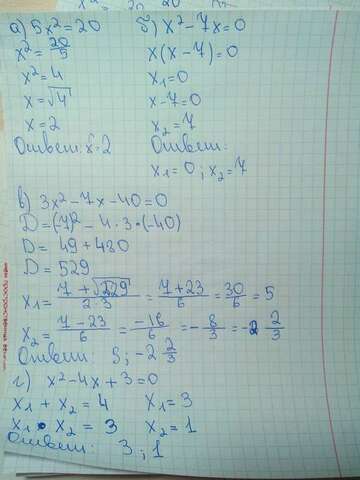 а) 5x²=20
x²=20/5
x²=4
x=√4
x=2
Ответ: x=2
б) x²-7x=0
x(x-7)=0
x1=0
x-7=0
x2=7
Ответ:
x1=0; x2=7
в) 3x²-7x-40=0
D=(-7)²-4·3·(-40)
D=49+480
D=529
x1=(7+√529)/(2·3)=(7+23)/6=30/6=5
x2=(7-23)/6=-16/6=-8/3=-2 2/3
Ответ: 5; -2 2/3
г) x²-4x+3=0
x1+x2=4 x1=3
x1·x2=3 x2=1
Ответ: 3; 1